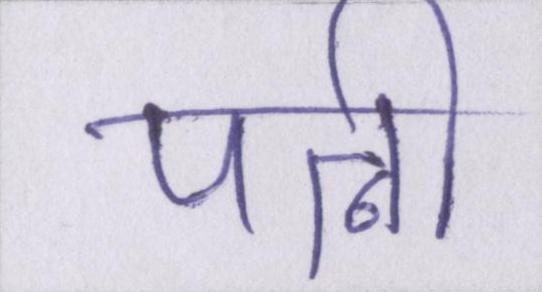 पत्नी